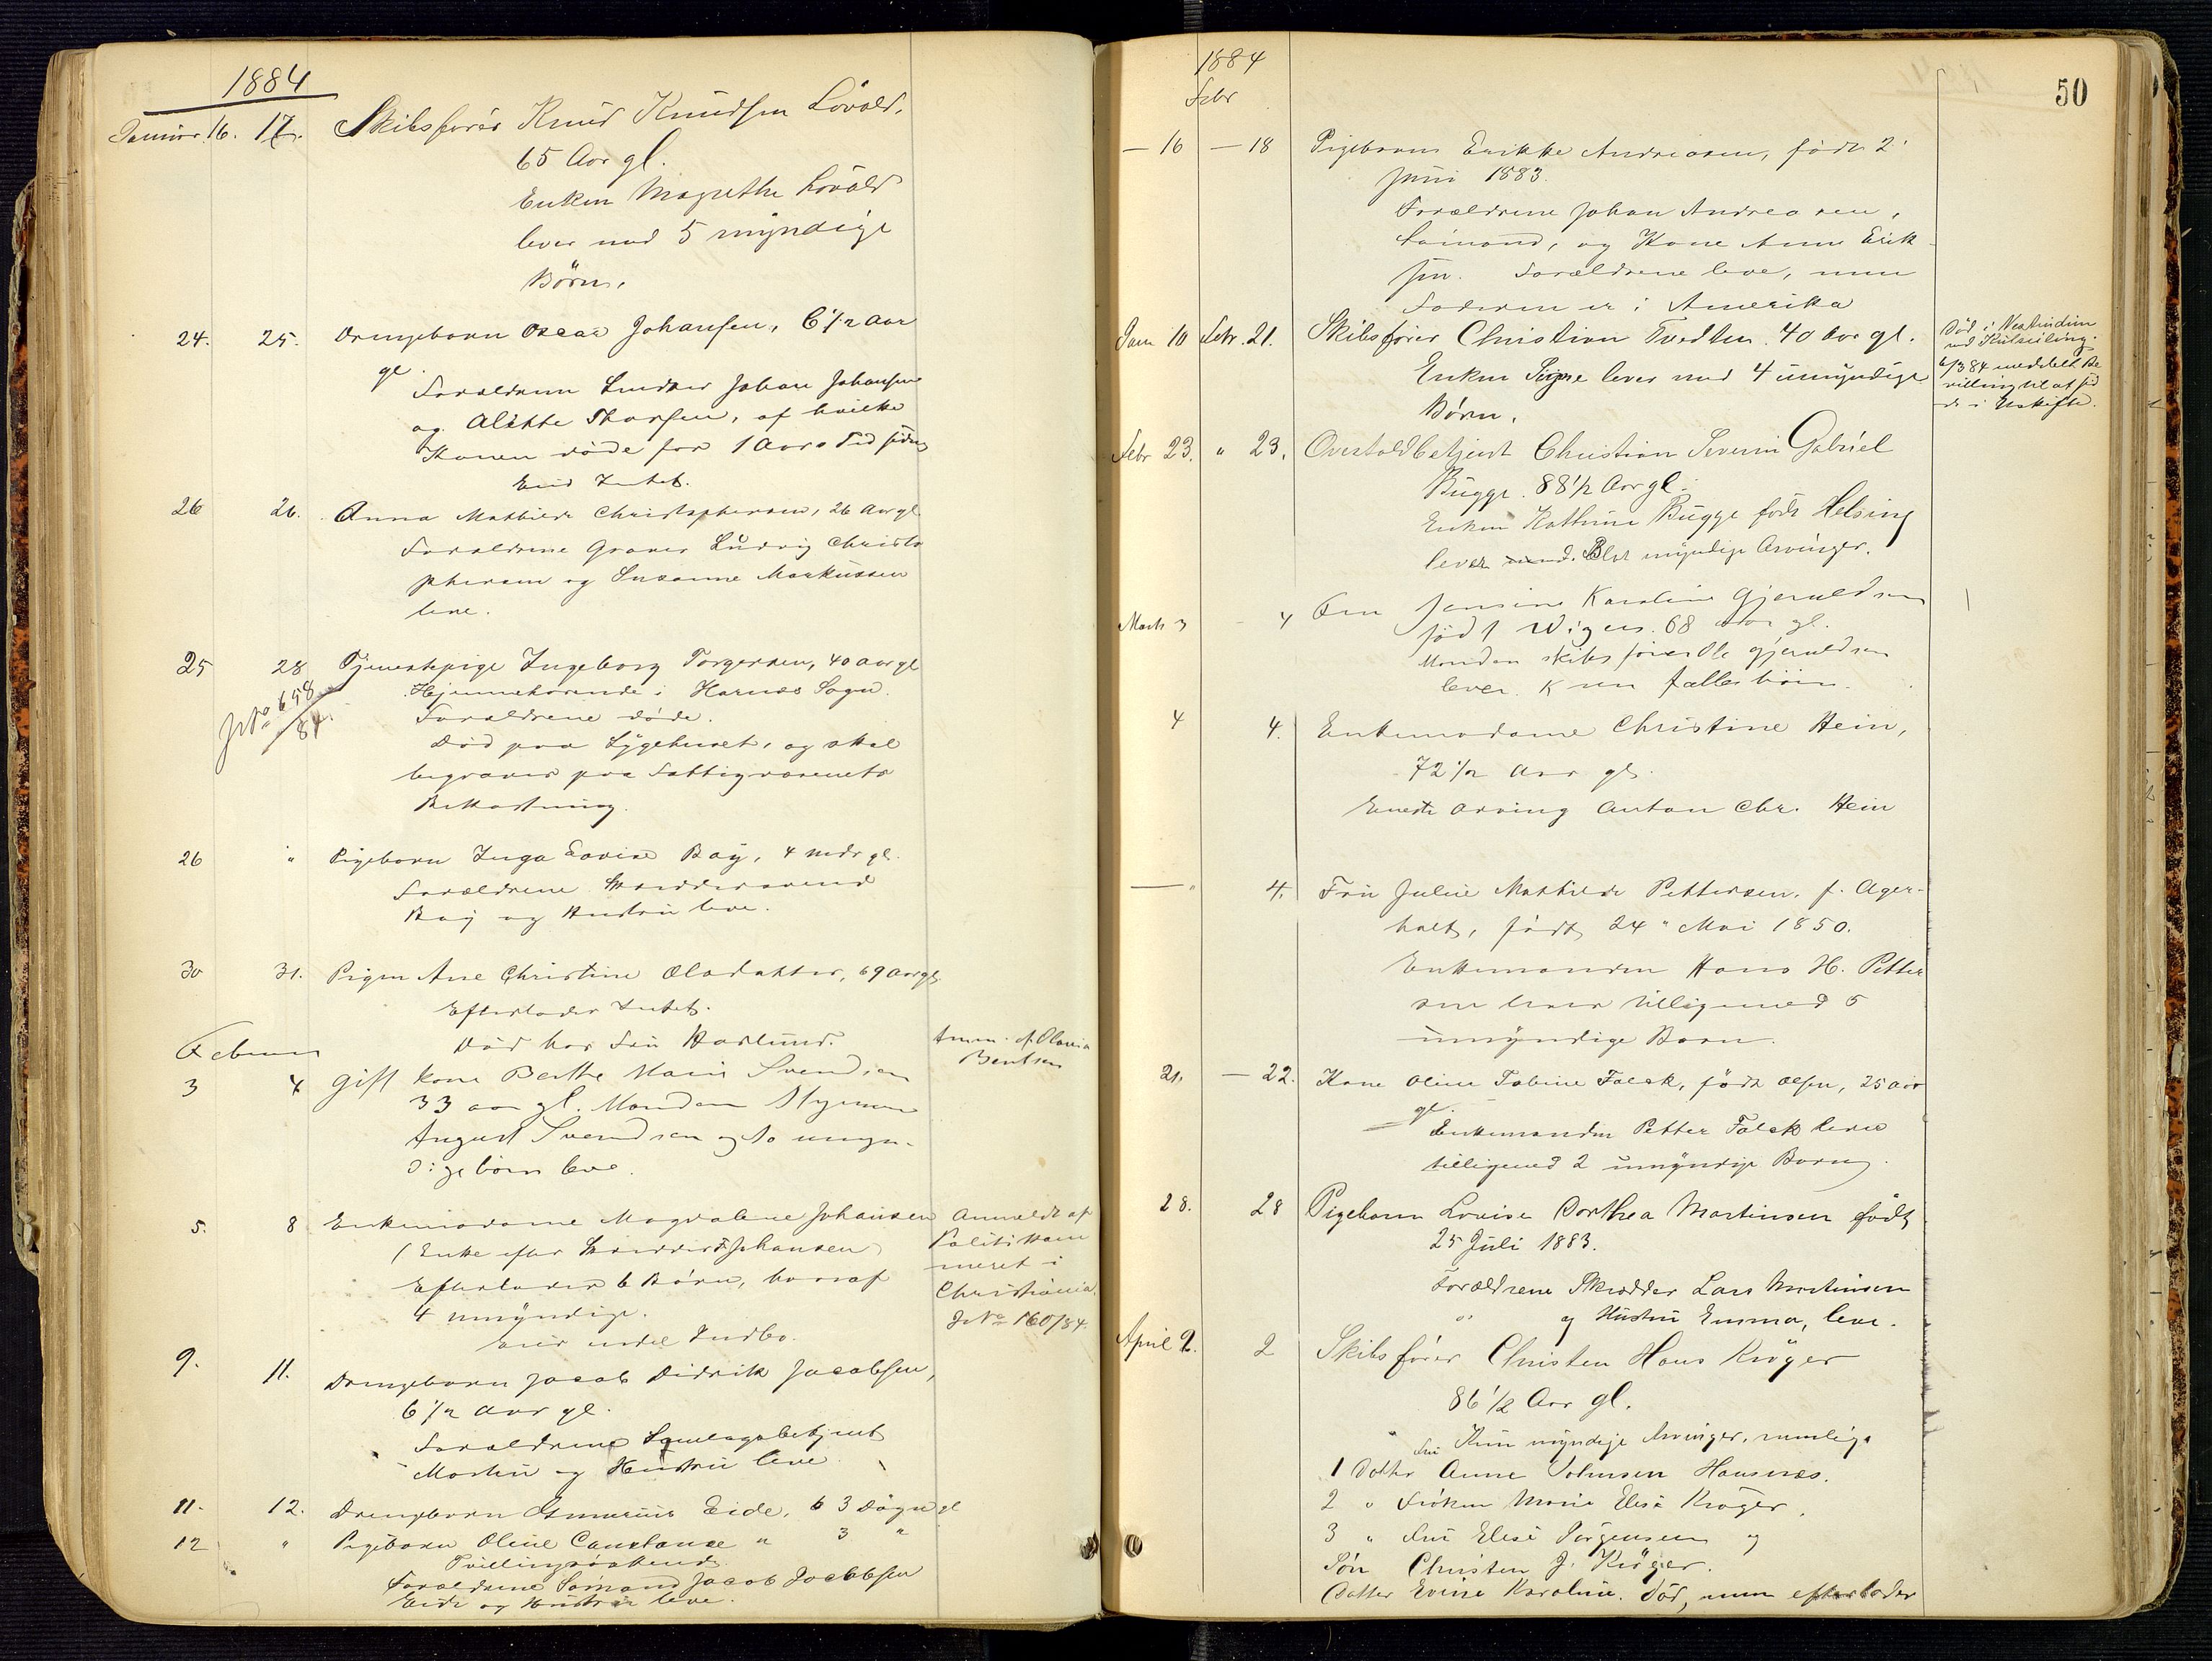 1884
Januar 16. 17. Skibsfører Knud Knudsen Lövold,
65 Aar gl.
Enken Magrethe Lövold
lever med 5 myndige
Börn.
24. 25. Drengebarn Oscar Johansen, 6 1/2 Aar
gl.
Forældrene Johan Johansen
og Alette Thorsen, af hvilke
Konen döde for 1 Aars Tid siden
Eied Intet.
26 26. Anna Mathilde Christophersen, 26 Aar gl
Forældrene Graver Ludvig Christo
phersen og Susanne Markussen
leve.
25 28 Tjenestepige Ingeborg Torgersen, 40 aar gl
Hjemmehörende i Hornes Sogn.
Forældrene döde.
Död paa Sygehuset, og skal
begraves paa Fattigvæsenets
Bekostning.
J No 658
84.
26 " Pigebarn Inga Lovise Bay, 4 mdr gl.
Forældrene Skræddersvend
Bay og Hustru leve.
30 31. Pigen Ane Christine Olsdatter, 69 Aar gl,
Efterlader Intet.
Död hos Fru Haslund.
Anm. af Olavia
Bentsen
Februar
3 4 Gift kone Berthe Marie Svendsen
33 aar gl. Manden Styrmand
August Svendsen og to umyn-
dige börn leve.
5. 8 Enkemadame Magdalene Johansen
(Enke efter Skrædder F. Johansen
Efterlader 6 Börn, hvoraf
4 umyndige.
Indbo.
Anmeldt af
Politikam
meret i
Christiania.
J No 160/84.
9. 11. Drengebarn Jacob Didrik Jacobsen,
6 1/2 Aar gl.
Forældrene
Martin og Hustru leve
11. 12. Drengebarn Gunerius Eide, 3 Dögn gl
12 " Pigebarn Oline Constance " 3 "
Tvillingsöskende
Forældrene Sömand Jacob Jacobsen
Eide og Hustru leve.
50
1884
Febr
— 16 — 18 Pigebarn Erikke Andreasen, född 2'
Juni 1883.
Forældrene Johan Andreasen,
Sömand, og Kone Anne Erik-
sen. Forældrene leve, men
Faderen er i Amerika
Jan 10 Febr. 21. Skibsfører Christian Tvedten. 40 Aar gl.
Enken lever med 4 umyndige
Börn.
Död i Vestindien
ved Kulseiling.
6/3 84 meddelt Be
villing til at sid
de i Uskifte.
Febr 23. " 23. Overtoldbetjent Christian Severin Gabriel
Bugge. 88 1/2 Aar gl.
Enken Kathrine Bugge födt Helsing
lever med. Blot myndige Arvinger.
Marts 3 4 Jensine Karoline Gjeruldsen
född Wigers. 68 aar gl.
Manden skibsfører Ole Gjeruldsen
lever. Kun fællesbörn.
4 4. Enkemadame Christine Hein,
72 1/2 Aar gl.
Eneste arving Anton Chr. Hein
— " 4. Fru Julie Mathilde Pettersen, f. Ager-
holt, födt 24 " Mai 1850.
Enkemanden Hans H. Petter
sen lever tilligemed 5
umyndige Born.
21. — 22. Kone Oline Tobine Falck, födt Olsen, 25 aar
gl.
Enkemanden Petter Falck lever
tilligemed 2 umyndige Born.
28. 28 Pigebarn Lovise Dorthea Martinsen födt
25 Juli 1883.
Forældrene Skrædder Lars Martinsen
og Hustru Emma, leve.
April 2. 2 Skibsfører Christen Hans Kröger
86 1/2 Aar gl.
Kun myndige Arvinger, nemlig.
1 Datter Fru Anne Hansnæs.
2 " Fröken Marie Elise Kröger,
3 " Fru Elise Jörgensen og
Sön Christen J. Kröger.
Datter Evine Karoline. Död, men efterlader